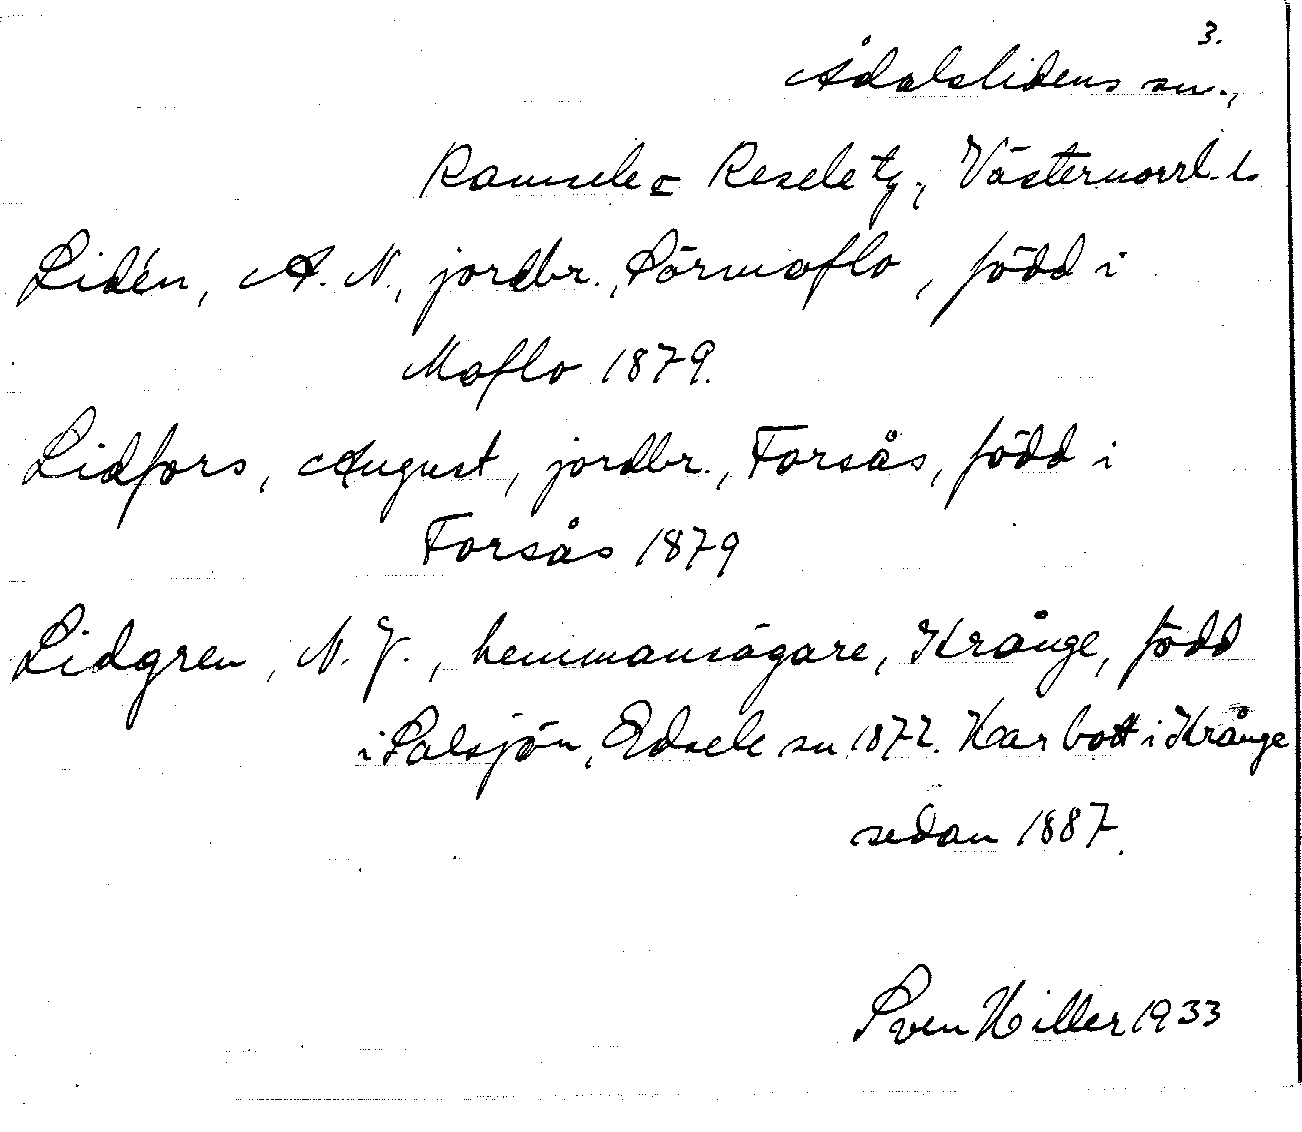 3.
Ådalslidens sn.,
Ramsele o Resele tg, Västernorrl. l.
Lidén, A. N., jordbr., Sörmoflo, född i
Moflo 1879.
Lidfors, August, jordbr., Forsås, född i
Forsås 1879
Lidgren, N. J., hemmansägare, Krånge, född
i Salsjön, Edsele sn 1872. Har bott i Krånge
sedan 1887.
Sven Hiller 1933